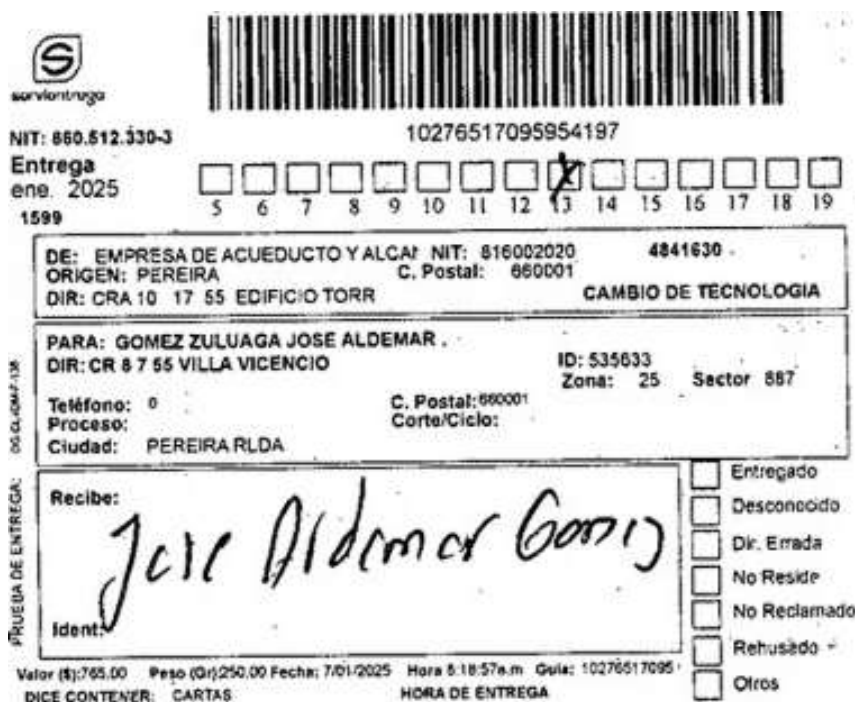 S
servientrega
NIT: 860.512.330-3
10276517095954197
Entrega
ene. 2025
5 6 7 8 9 10 11 12 13 14 15 16 17 18 19
X
1599
DE: EMPRESA DE ACUEDUCTO Y ALCAI NIT: 816002020 4841630
ORIGEN: PEREIRA C. Postal: 660001
DIR: CRA 10 17 55 EDIFICIO TORR CAMBIO DE TECNOLOGIA
PARA: GOMEZ ZULUAGA JOSE ALDEMAR .
DIR: CR 8 7 55 VILLA VICENCIO ID: 535633
Zona: 25 Sector 887
Teléfono: 0 C. Postal: 660001
Proceso: Corte/Ciclo:
Ciudad: PEREIRA RLDA
PRUEBA DE ENTREGA:
Recibe:
Jose Aldemar Gomez
Ident:
Entregado
Desconocido
Dir. Errada
No Reside
No Reclamado
Rehusado
Otros
Valor ($):765.00 Peso (Gr):250.00 Fecha: 7/01/2025 Hora 6:18:57a.m Guia: 10276517095
DICE CONTENER: CARTAS HORA DE ENTREGA